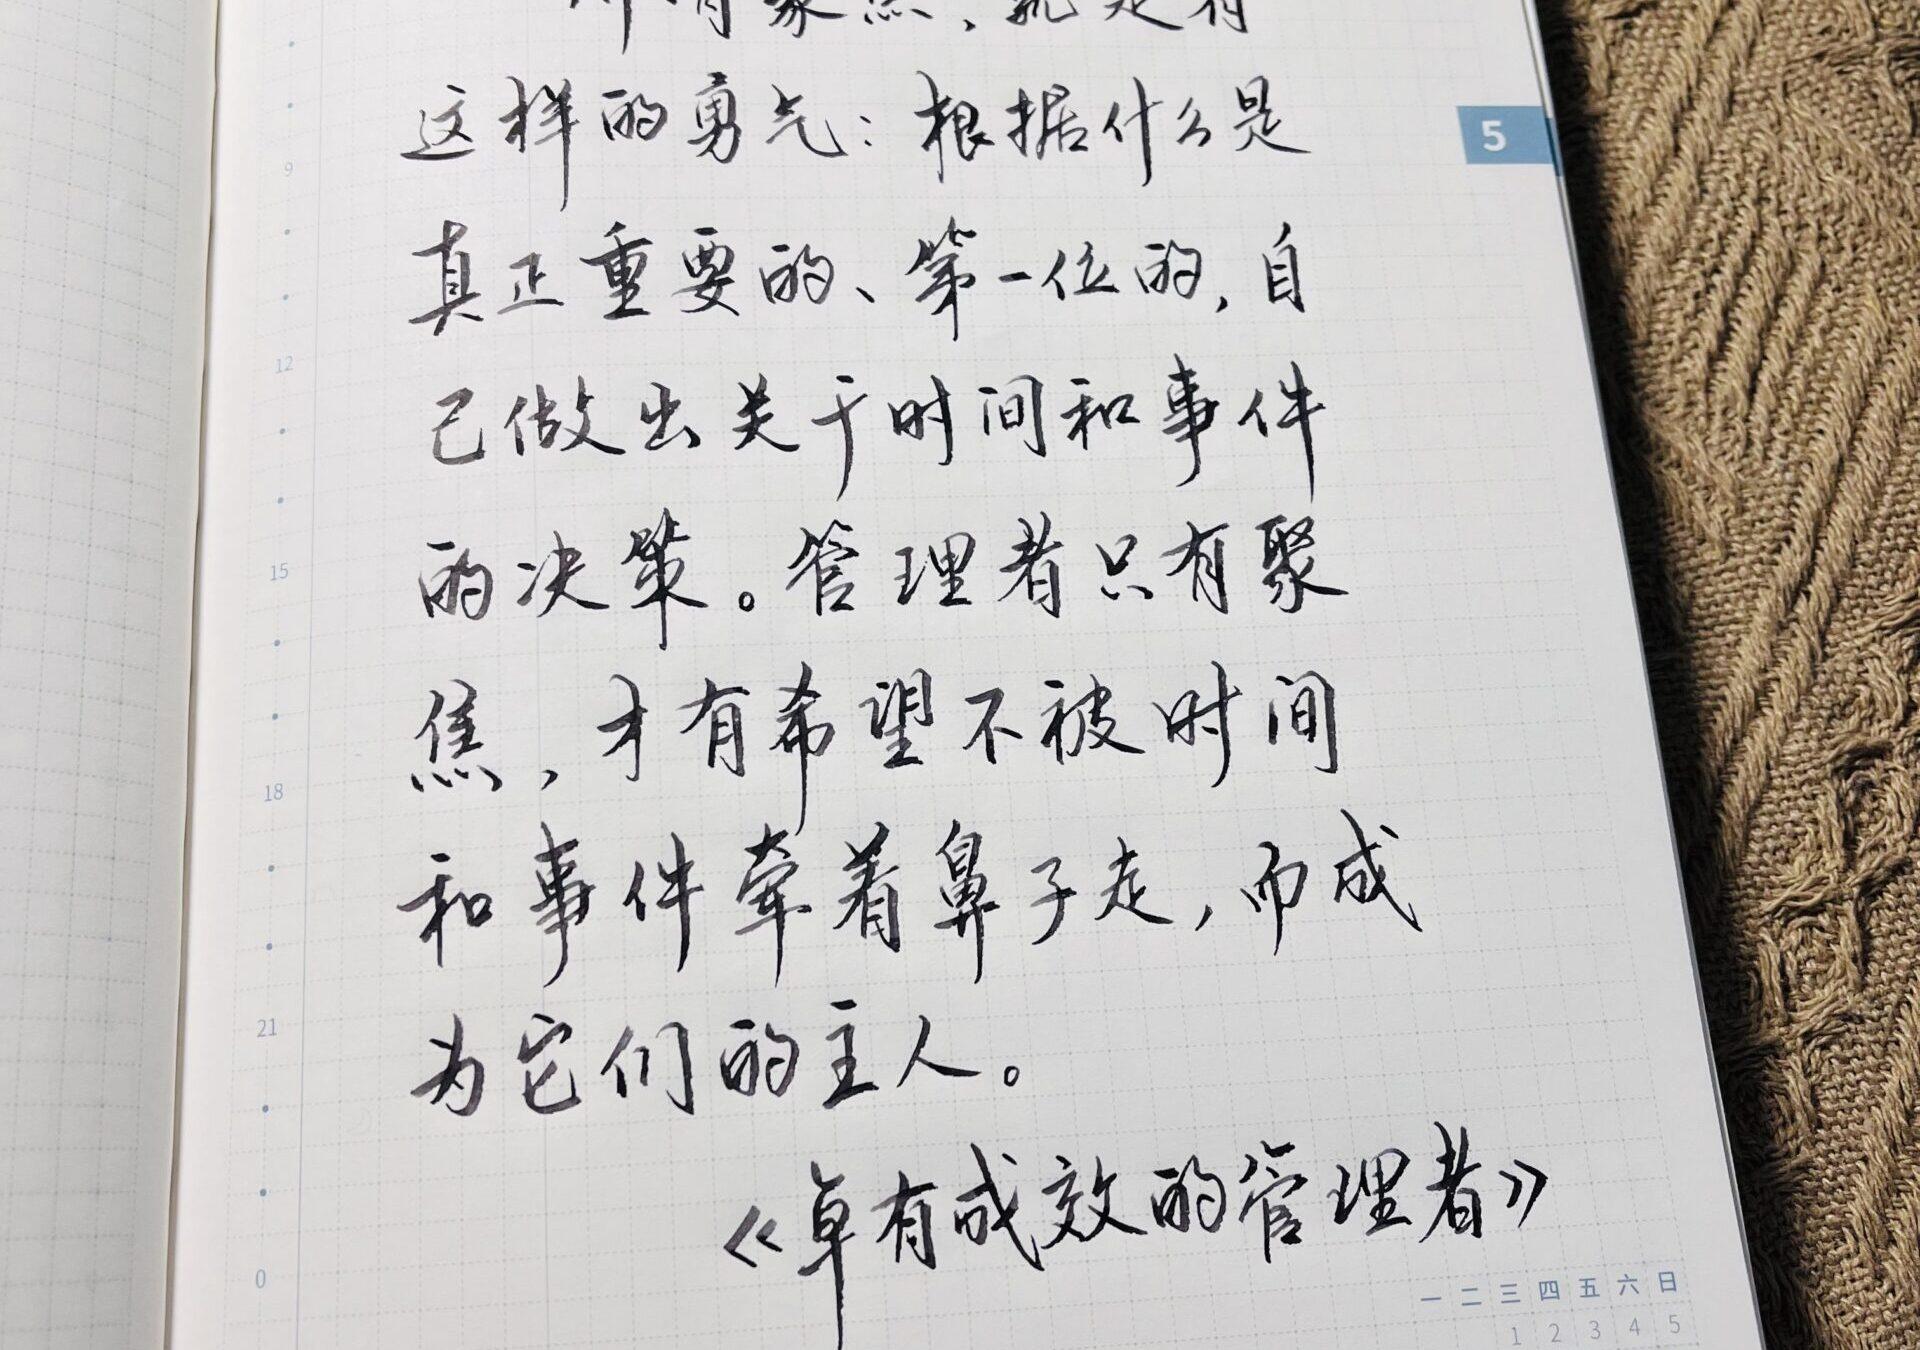 所有聚焦，就是有
这样的勇气：根据什么是
5
9
真正重要的、第一位的，自
12
己做出关于时间和事件
的决策。管理者只有聚
15
焦，才有希望不被时间
18
和事件牵着鼻子走，而成
21
为它们的主人。
《卓有成效的管理者》
0
一 二 三 四 五 六 日
1 2 3 4 5